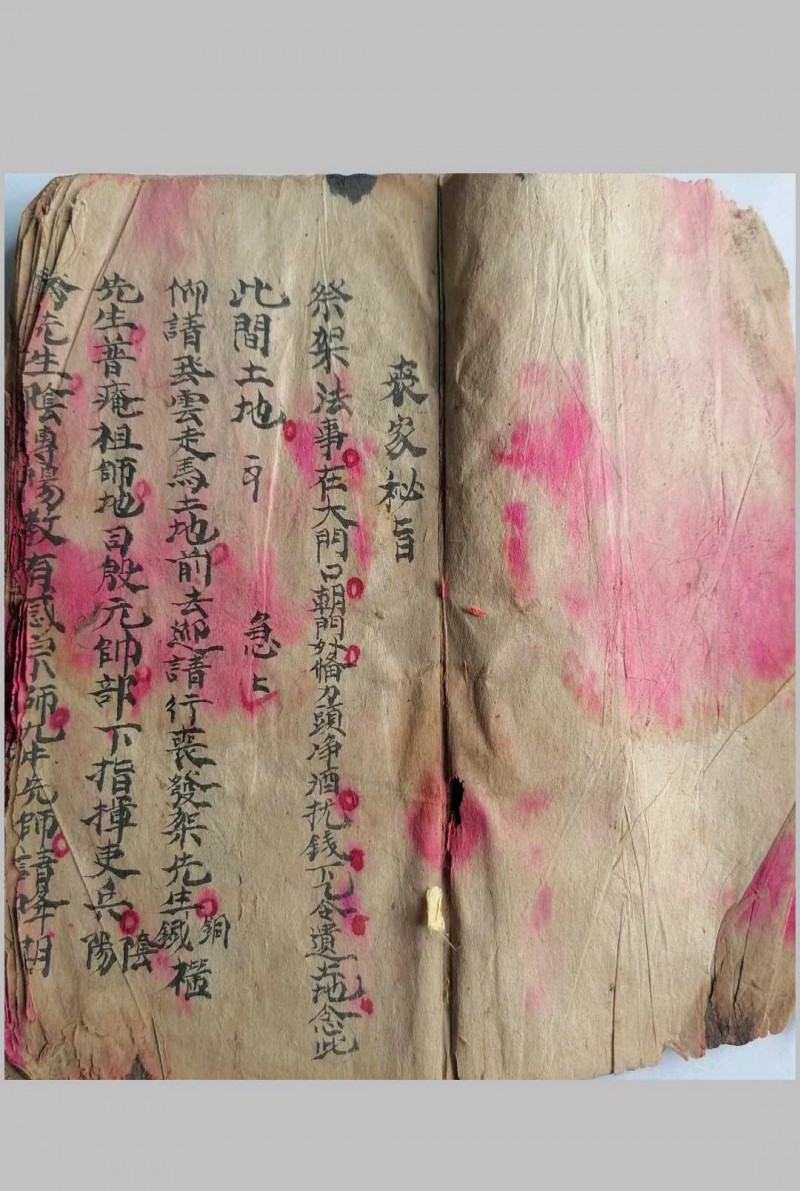 喪家秘旨
祭架法事在大門口朝門外備刀頭净酒扰錢下令遣土地念此
此間土地 急
仰請飛雲走馬土地前去迎請行喪發架先生銅鐵
先生普庵祖師地司殷元帥部下指揮吏兵陰陽
先生陰專陽教有感宗師九牛先師請降